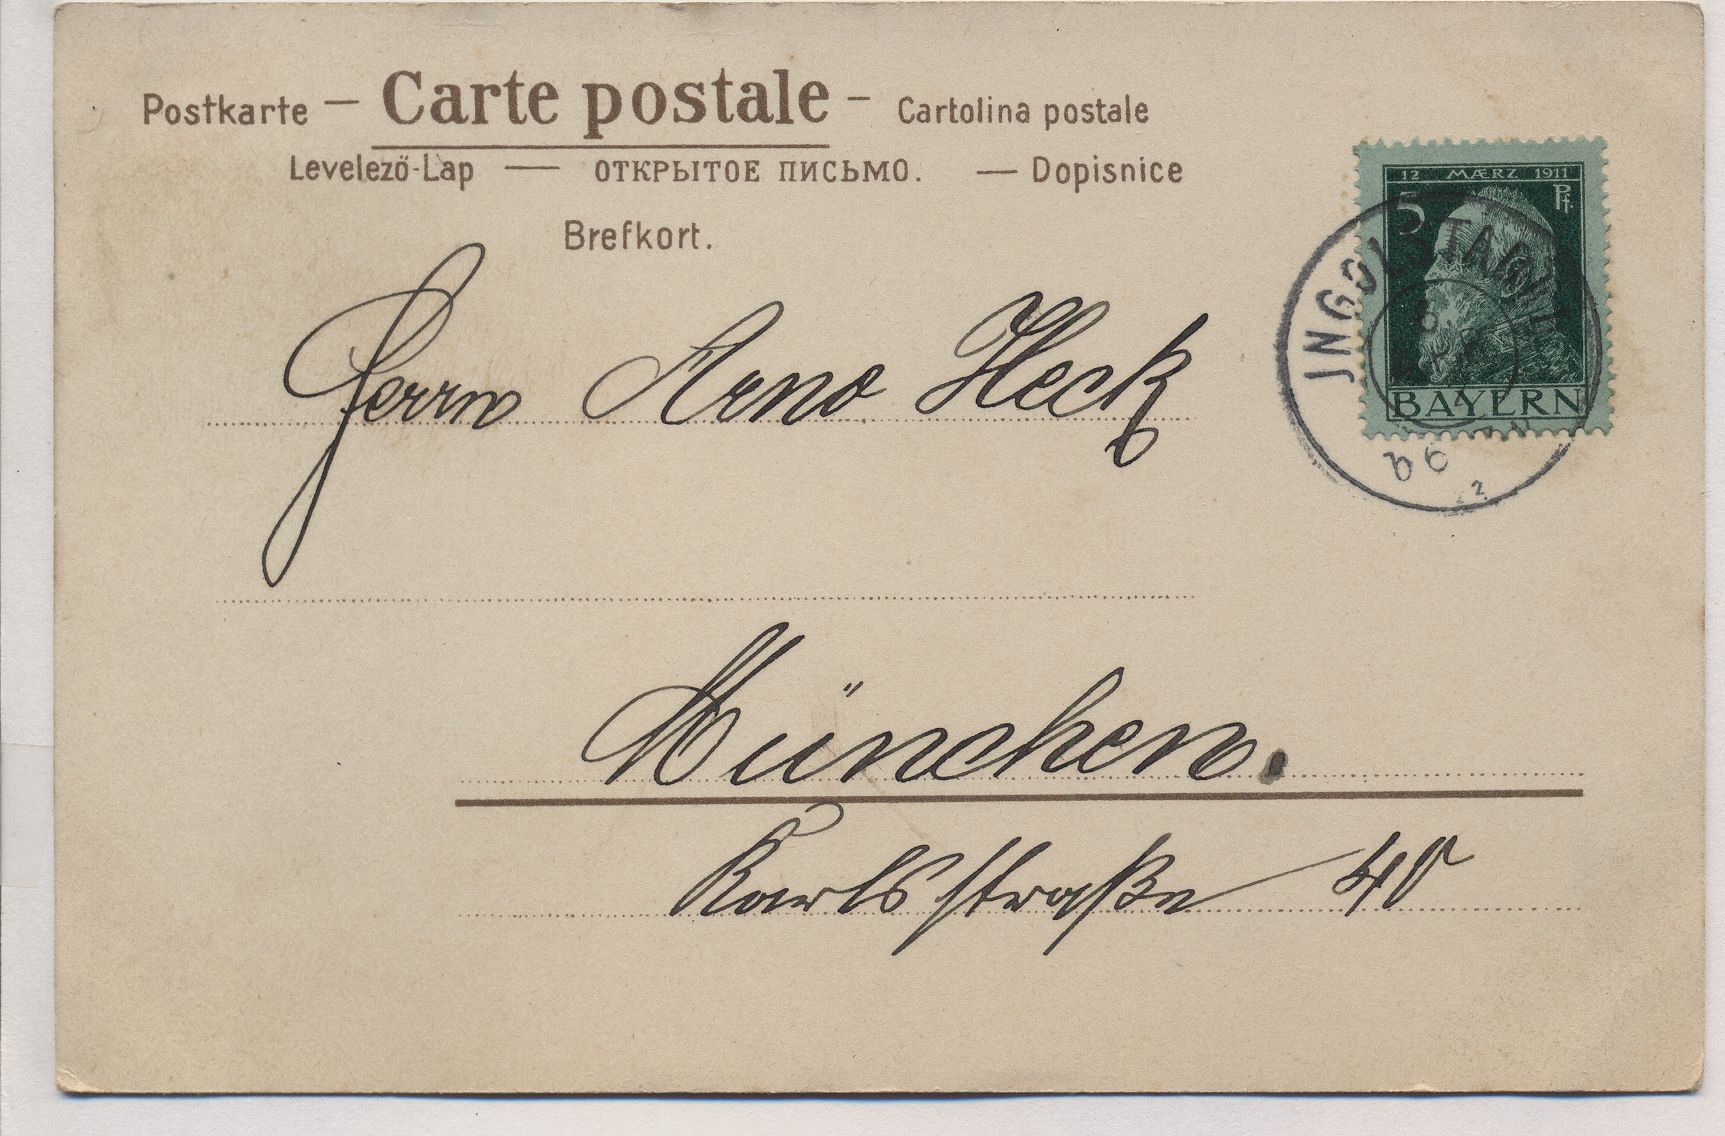 Postkarte — Carte postale — Cartolina postale
Levelező-Lap — ОТКРЫТОЕ ПИСЬМО. — Dopisnice
Brefkort.
12 MÆRZ 1911
5 Pf.
BAYERN
INGOLSTADT
Herrn Arno Heck
München.
Karlsstraße 40